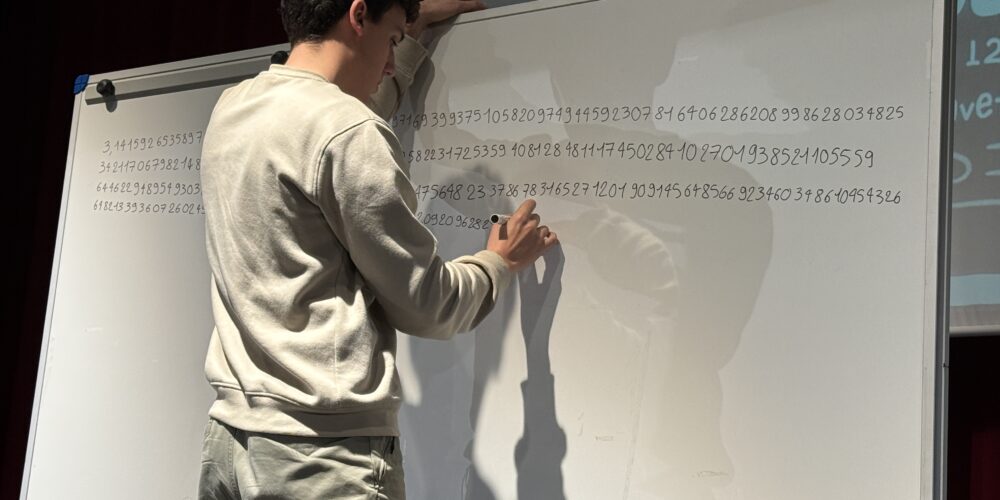 3,1415926535897 7169399375105820974944592307816406286208998628034825
342117067982148 58223172535940812848111745028410270193852110555​9
6446229489549303 4756482337867831652712019091456485669234603486104543​26
6482133936072602 2092096282
12
ove